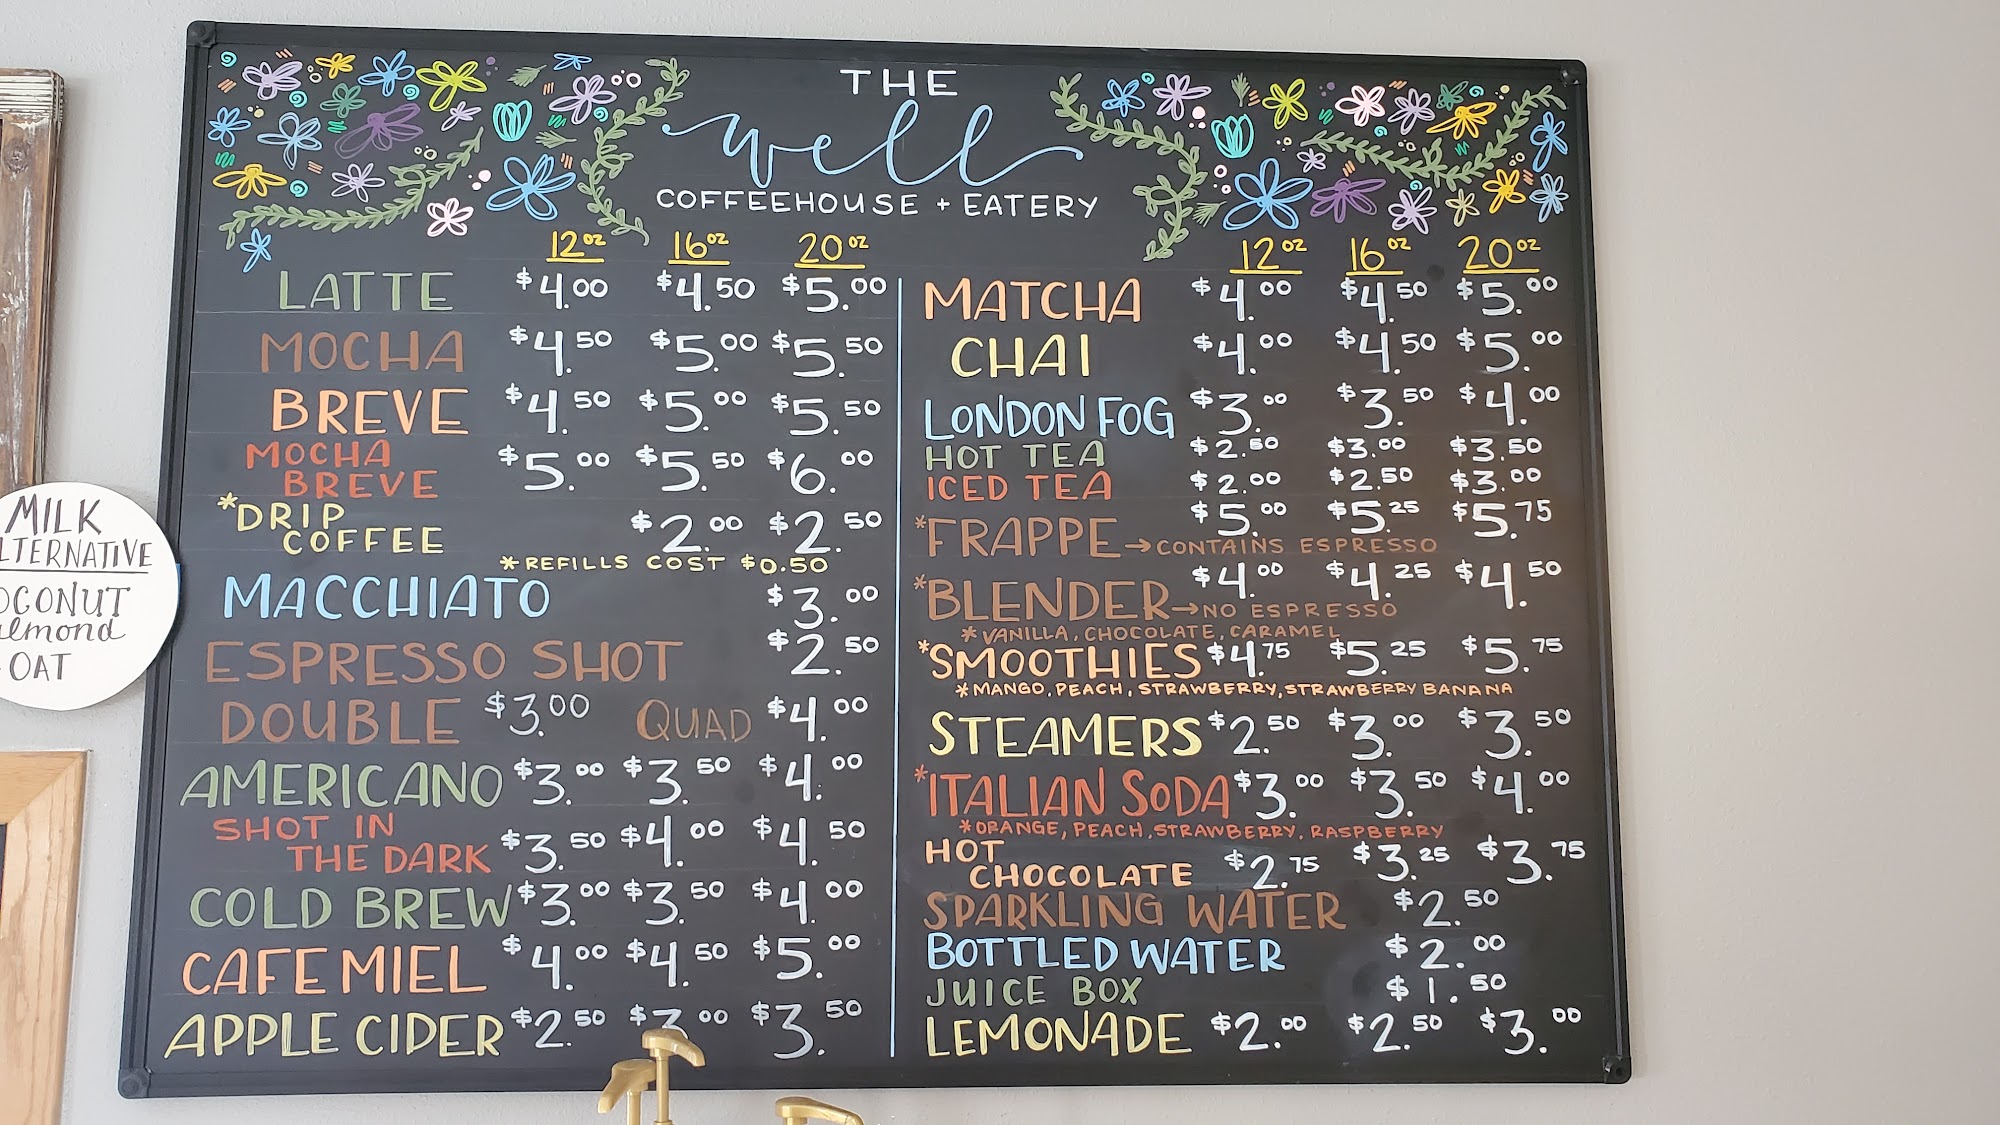 THE
well
COFFEEHOUSE + EATERY
12oz 16oz 20oz
LATTE $4.00 $4.50 $5.00
MOCHA $4.50 $5.00 $5.50
BREVE $4.50 $5.00 $5.50
MOCHA
BREVE $5.00 $5.50 $6.00
*DRIP
COFFEE $2.00 $2.50
*REFILLS COST $0.50
MACCHIATO $3.00
ESPRESSO SHOT $2.50
DOUBLE $3.00 QUAD $4.00
AMERICANO $3.00 $3.50 $4.00
SHOT IN
THE DARK $3.50 $4.00 $4.50
COLD BREW $3.00 $3.50 $4.00
CAFE MIEL $4.00 $4.50 $5.00
APPLE CIDER $2.50 $3.00 $3.50
12oz 16oz 20oz
MATCHA $4.00 $4.50 $5.00
CHAI $4.00 $4.50 $5.00
LONDON FOG $3.00 $3.50 $4.00
HOT TEA $2.50 $3.00 $3.50
ICED TEA $2.00 $2.50 $3.00
*FRAPPE→CONTAINS ESPRESSO $5.00 $5.25 $5.75
*BLENDER→NO ESPRESSO $4.00 $4.25 $4.50
*VANILLA, CHOCOLATE, CARAMEL
*SMOOTHIES $4.75 $5.25 $5.75
*MANGO, PEACH, STRAWBERRY, STRAWBERRY BANANA
STEAMERS $2.50 $3.00 $3.50
*ITALIAN SODA $3.00 $3.50 $4.00
*ORANGE, PEACH, STRAWBERRY, RASPBERRY
HOT
CHOCOLATE $2.75 $3.25 $3.75
SPARKLING WATER $2.50
BOTTLED WATER $2.00
JUICE BOX $1.50
LEMONADE $2.00 $2.50 $3.00
MILK
LTERNATIVE
OCONUT
almond
OAT